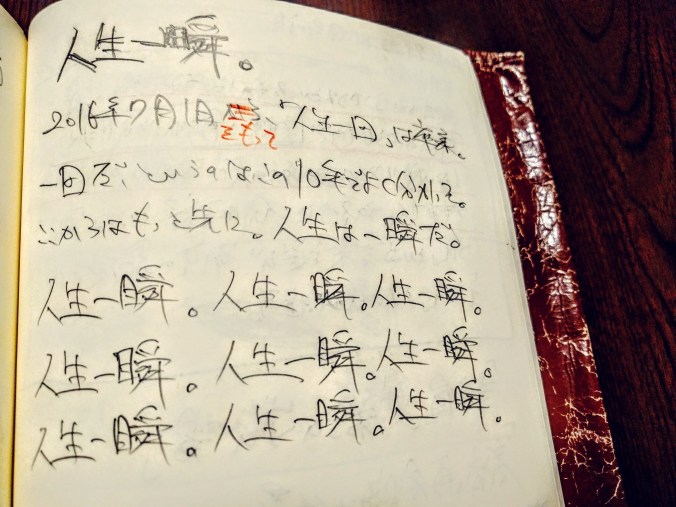 人生一瞬。
2016年7月1日をもって、「人生一回」は卒業。
一回だ、というのはこの10年でよく分かった。
ここからはもっと先に。人生は一瞬だ。
人生一瞬。人生一瞬。人生一瞬。
人生一瞬。人生一瞬。人生一瞬。
人生一瞬。人生一瞬。人生一瞬。